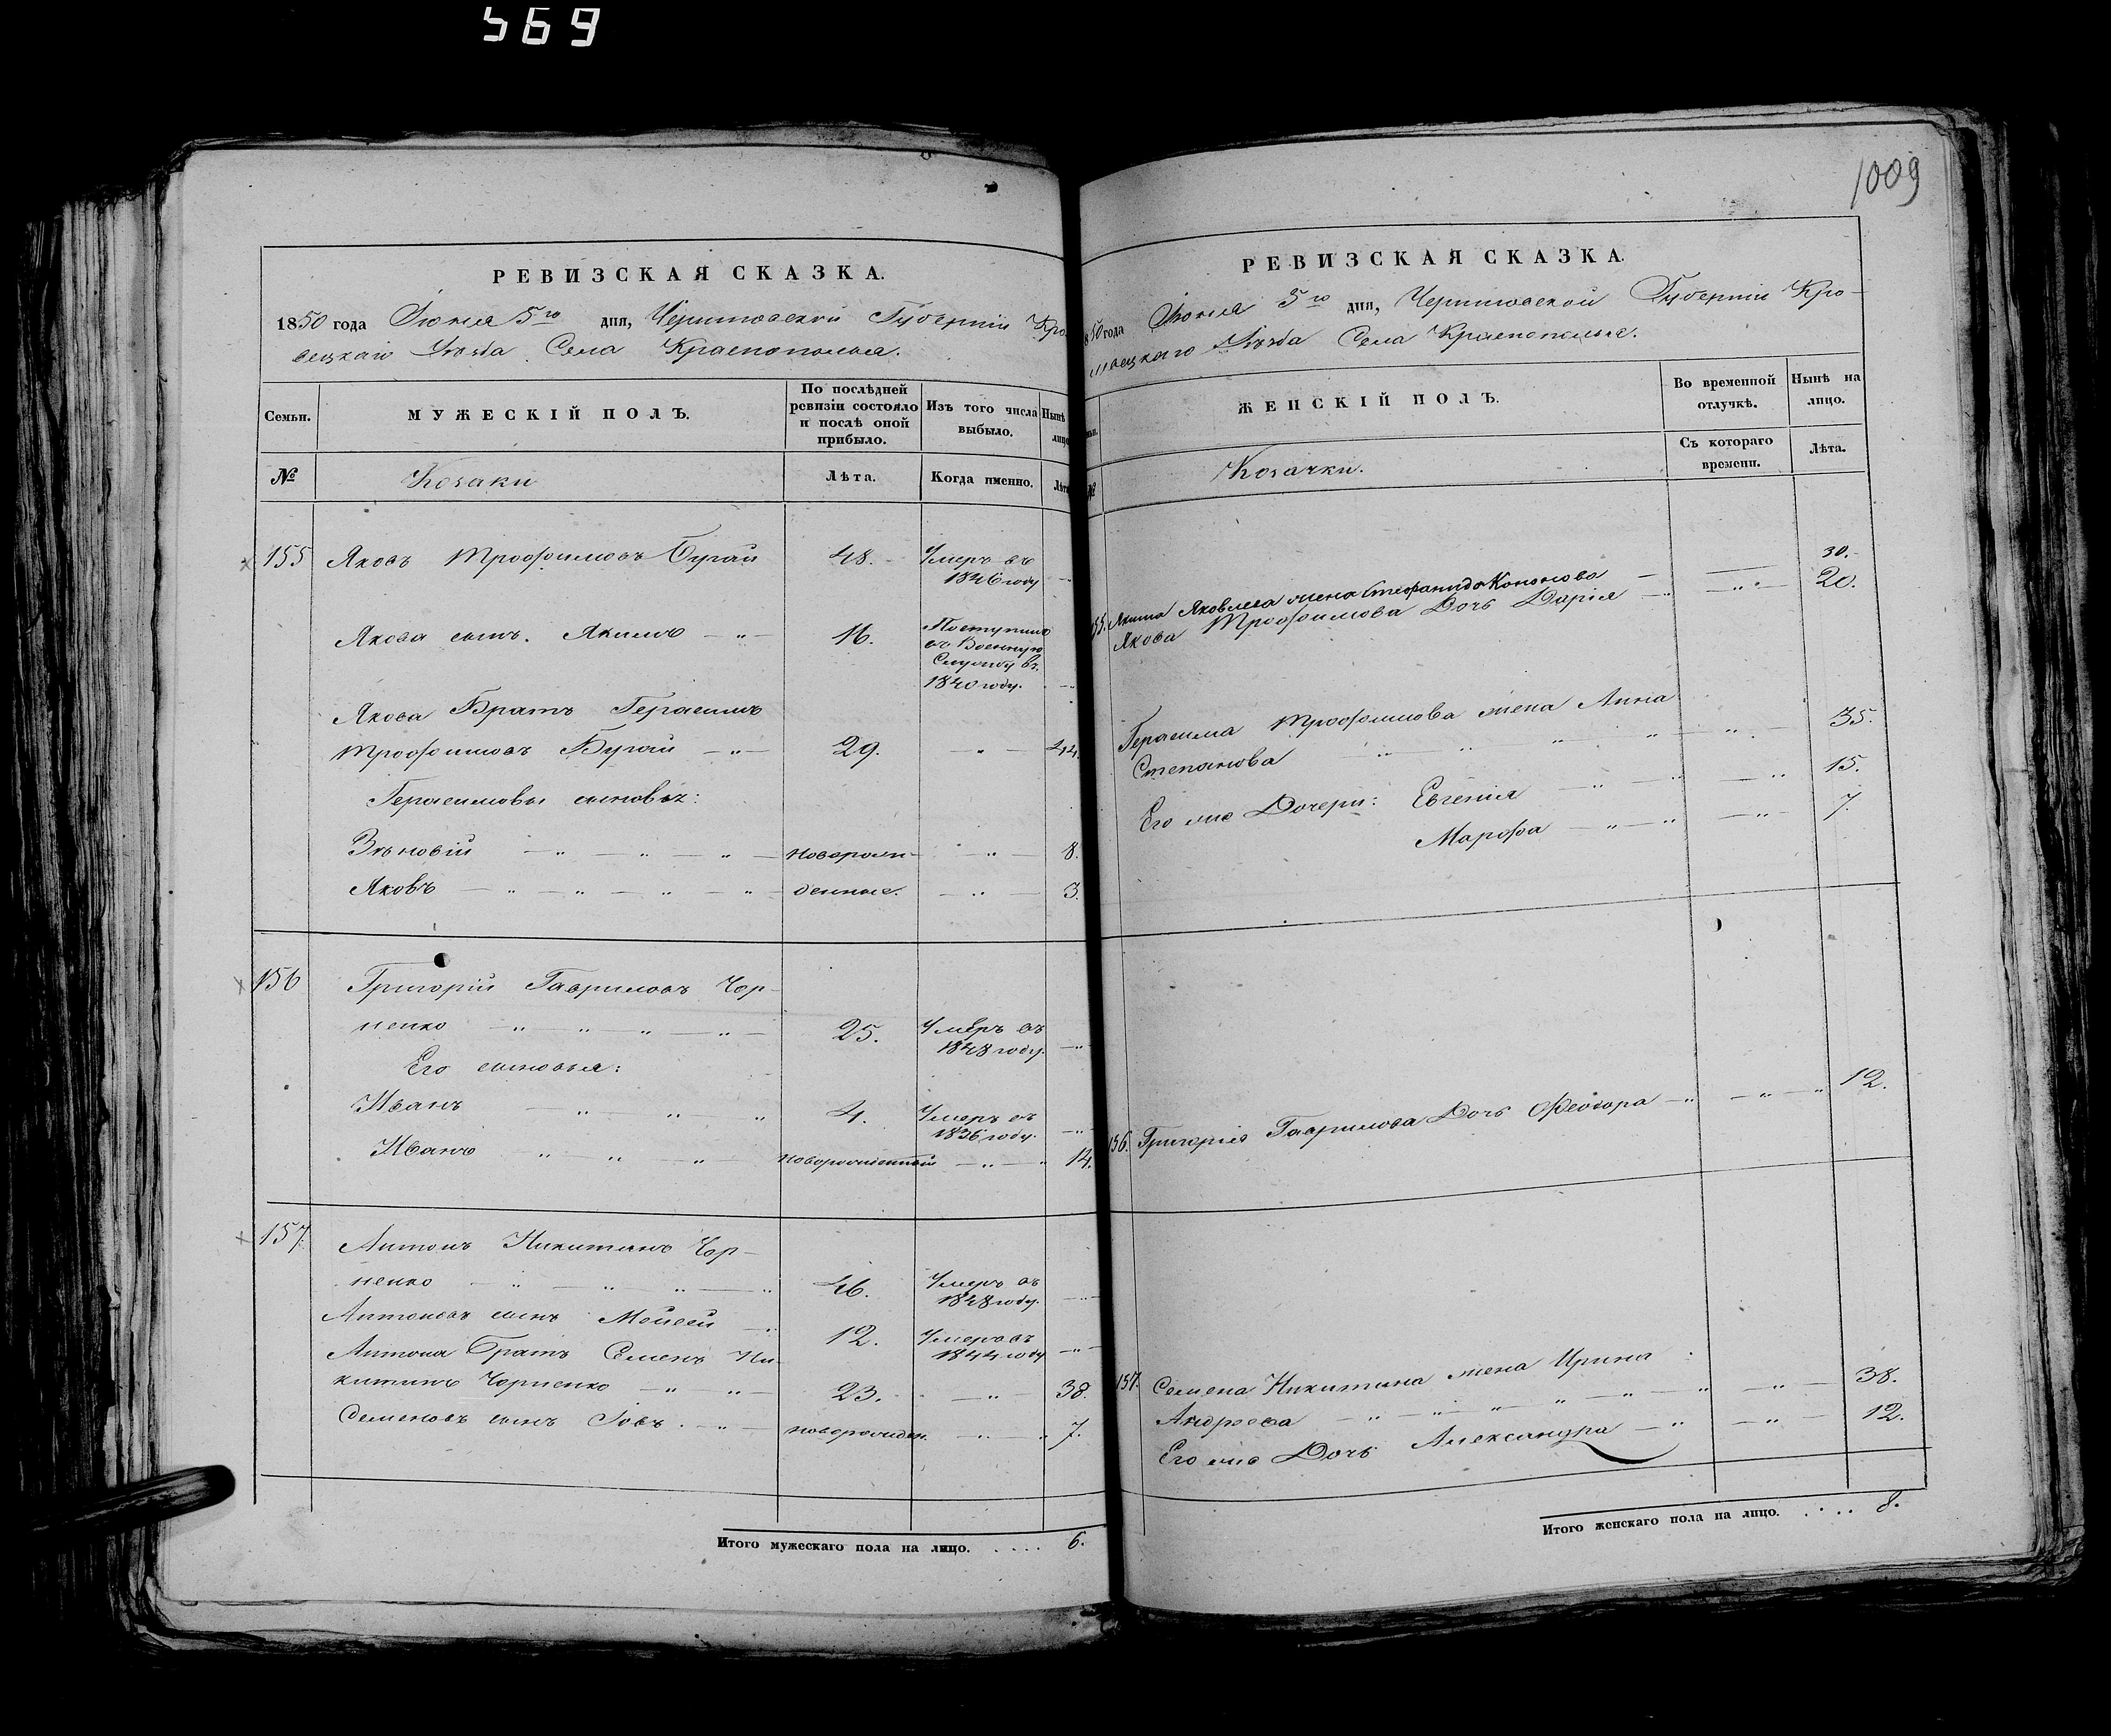 569
РЕВИЗСКАЯ СКАЗКА.
1850 года Июня 5го дня, Черниговской Губернии Кро
вецкаго Уѣзда Села Краснополья.
Семьи.
МУЖЕСКІЙ ПОЛЪ.
По послѣдней ревизіи состояло и послѣ оной прибыло.
Изъ того числа выбыло.
Нынѣ лицо
№
Козаки
Лѣта.
Когда именно.
Лѣта
155 Яковъ Трофимовъ Бугай 48. Умеръ въ
1846 году
Якова сынъ. Якимъ — " — 16. Поступилъ
въ Военную
Службу въ
1840 году.
Якова Братъ Герасимъ
Трофимовъ Бугай — " — 29. — " — 44.
Герасимовы сыновья:
Зѣновій — " — " — " — новорож- — " — 8.
Яковъ — " — " — " — " денные. — " — 3.
156 Григорій Гавриловъ Чор-
ненко — " " — " — " — 25. Умеръ въ
1848 году. — "
Его сыновья:
Иванъ — " — " — " 4. Умеръ въ
1836 году. — "
Иванъ — " — " — " новорожденный — " — " 14.
157 Антонъ Никитинъ Чор-
ненко — " — " — " — " 46. Умеръ въ
1848 году. — " —
Антоновъ сынъ Мойсей — " 12. Умеръ въ
1844 году — " —
Антона Братъ Семенъ Ни-
китинъ Чорненко — " " — 23. — " — 38.
Семеновъ сынъ Іовъ. — " — новорожден. — " — " 7.
Итого мужескаго пола на лицо. . . . . 6.
1009
РЕВИЗСКАЯ СКАЗКА.
1850 года Июня 5го дня, Черниговской Губерніи Кро-
левецкаго Уѣзда Села Краснополья.
ЖЕНСКІЙ ПОЛЪ.
Во временной отлучкѣ.
Нынѣ на лицо.
№
Козачки.
Съ котораго времени.
Лѣта.
155. Якима Яковлева жена Стефанида Кононова — 30.
Якова Трофимова Дочь Дарія — " — " — 20.
Герасима Трофимова жена Анна
Степанова " " " " — " — 35.
Его же Дочери: Евгенія — " — " — " 15.
Марфа — " — " — " — 7.
156. Григорія Гаврилова Дочь Феодора — " — " — " 12.
157. Семена Никитина жена Ирина :
Андреева — " — " — " — " — " — " — 38.
Его же Дочь Александра — " — " — 12.
Итого женскаго пола на лицо. . . . . 8.